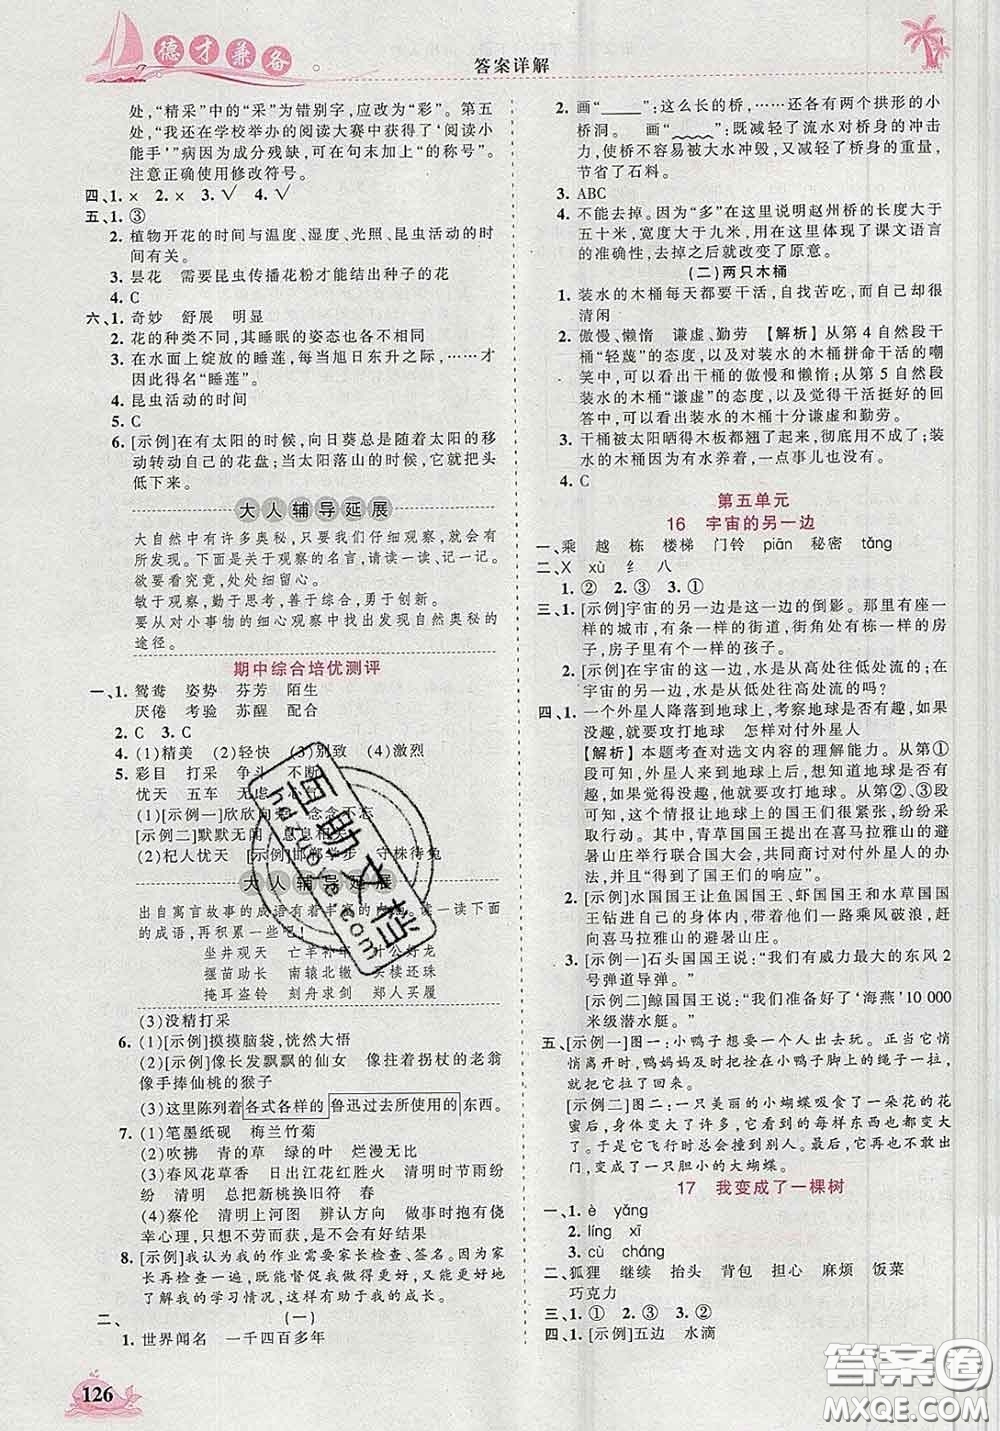 德才兼备
答案详解
处，“精采”中的“采”为错别字，应改为“彩”。第五
处，“我还在学校举办的阅读大赛中获得了‘阅读小
能手’”病因为成分残缺，可在句末加上“的称号”。
注意正确使用修改符号。
四、1. × 2. × 3. √ 4. √
五、1. ③
2. 植物开花的时间与温度、湿度、光照、昆虫活动的时
间有关。
3. 昙花 需要昆虫传播花粉才能结出种子的花
4. C
六、1. 奇妙 舒展 明显
2. 花的种类不同，其睡眠的姿态也各不相同。
3. 在水面上绽放的睡莲，每当旭日东升之际，……才
因此得名“睡莲”。
4. 昆虫活动的时间
5. C
6. [示例]在有太阳的时候，向日葵总是随着太阳的移
动转动自己的花盘；当太阳落山的时候，它就把头
低下来。
大人辅导延展
大自然中有许多奥秘，只要我们仔细观察，就会有
所发现。下面是关于观察的名言，请读一读、记一记。
欲要看究竟，处处细留心。
敏于观察，勤于思考，善于综合，勇于创新。
要从对小事物的细心观察中找发现自然奥秘的
途径。
期中综合培优测评
一、1. 鸳鸯 姿势 芬芳 陌生
厌倦 考验 苏醒 配合
2. C 3. C
4. (1)精美 (2)轻快 (3)别致 (4)激烈
5. 彩目 打采 争斗 不断
忧天 五车 无虑 心
(1)[示例一]欣欣向荣 念念不忘
[示例二]默默无闻 息息相关
(2)杞人忧天 [示例]邯郸学步 守株待兔
大人辅导延展
出自寓言故事的成语有着丰富的内涵。读一读下面
的成语，再积累一些吧！
坐井观天 亡羊补牢 叶公好龙
揠苗助长 南辕北辙 买椟还珠
掩耳盗铃 刻舟求剑 郑人买履
(3)没精打采
6. (1)[示例]摸摸脑袋，恍然大悟
(2)[示例]像长发飘飘的仙女 像拄着拐杖的老翁
像手捧仙桃的猴子
(3)这里陈列着各式各样的鲁迅过去所使用的东西。
7. (1)笔墨纸砚 梅兰竹菊
(2)吹拂 青的草 绿的叶 烂漫无比
(3)春风花草香 日出江花红胜火 清明时节雨纷
纷 清明 总把新桃换旧符 春
(4)蔡伦 清明上河图 辨认方向 做事时抱有侥
幸心理，只想不劳而获，是不会有好结果
8. [示例]我认为我的作业需要家长检查、签名。因为家
长再检查一遍，既能督促我做得更好，又能更好地了
解我的学习情况，这样有助于我的成长。
二、 (一)
1. 世界闻名 一千四百多年
126
2. 画“____”：这么长的桥，……还各有两个拱形的小
桥洞。 画“﹏﹏”：既减轻了流水对桥身的冲击
力，使桥不容易被大水冲毁，又减轻了桥身的重量，
节省了石料。
3. ABC
4. 不能去掉。因为“多”在这里说明赵州桥的长度大于
五十米，宽度大于九米，用在这里体现了课文语言
的准确性，去掉之后就改变了原意。
(二)两只木桶
1. 装水的木桶每天都要干活，自找苦吃，而自己却很
清闲
2. 傲慢、懒惰 谦虚、勤劳 【解析】从第 4 自然段干
桶“轻蔑”的态度，以及对装水的木桶拼命干活的嘲
笑中，可以看出干桶的傲慢和懒惰；从第 5 自然段
装水的木桶“谦虚”的态度，以及最干活挺好的回
答中，可以看出装水的木桶十分谦虚和勤劳。
3. 干桶被太阳晒得木板都翘了起来，彻底用不成了；装
水的木桶因为有水养着，一点事儿也没有。
4. C
第五单元
16 宇宙的另一边
一、乘 越 栋 楼梯 门铃 piān 秘密 tǎng
二、X xù 纟 八
1. ② 2. ③ 3. ①
三、1. [示例]宇宙的另一边是这一边的倒影。那里有座一
样的城市，有条一样的街道，街角处有栋一样的房
子，房子里有个一样的孩子。
2. [示例]在宇宙的这一边，水是从高处流向低处的；在
宇宙的另一边，水是从低处流向高处的吗？
四、1. 一个外星人降落到地球上，考察地球是否有趣，如果
没趣，就要攻打地球 怎样对付外星人
【解析】本题考查对选文内容的理解能力。从第①
段可知，外星人来到地球上是要考察地球是否有
趣，如果觉得不有趣，他就要攻打地球。从第②、③段
可知，这个情报让地球上的国王们很紧张，纷纷采
取行动。其中，青草国国王提出在喜马拉雅山的避
暑山庄举行联合国大会，共同商讨对付外星人的办
法，并“得到了国王们的响应”。
2. [示例]水国国王让鱼国国王、虾国国王和水草国国
王钻进自己的身体内，带着他们一路乘风破浪，赶
向喜马拉雅山的避暑山庄。
3. [示例一]石头国国王说：“我们有威力最大的东风 2
号弹道导弹。”
[示例二]鲸国国王说：“我们准备了‘海燕’10 000
米级潜水艇。”
五、[示例一]图一：小鸭子想要一个人出去玩。它悄
悄离开时，鸭妈妈及时把拴在小鸭子脚上的绳子一拉，
就把它拉了回来。
[示例二]图二：一只美丽的小蝴蝶吸食了一朵花的花
蜜后，身体变大了许多。它看到的每样东西也都
变大了，于是它飞行时总会撞到别人。最后，它再也不敢出
门，变成了一只胆小的大蝴蝶。
17 我变成了一棵树
一、1. è yǎng
2. líng xī
3. cù cháng
二、狐狸 继续 抬头 背包 担心 麻烦 饭菜
巧克力
三、1. ① 2. ③ 3. ②
四、1. [示例]五边 水滴
百助文档
hdzuoye.com
答案卷
MXQE.COM